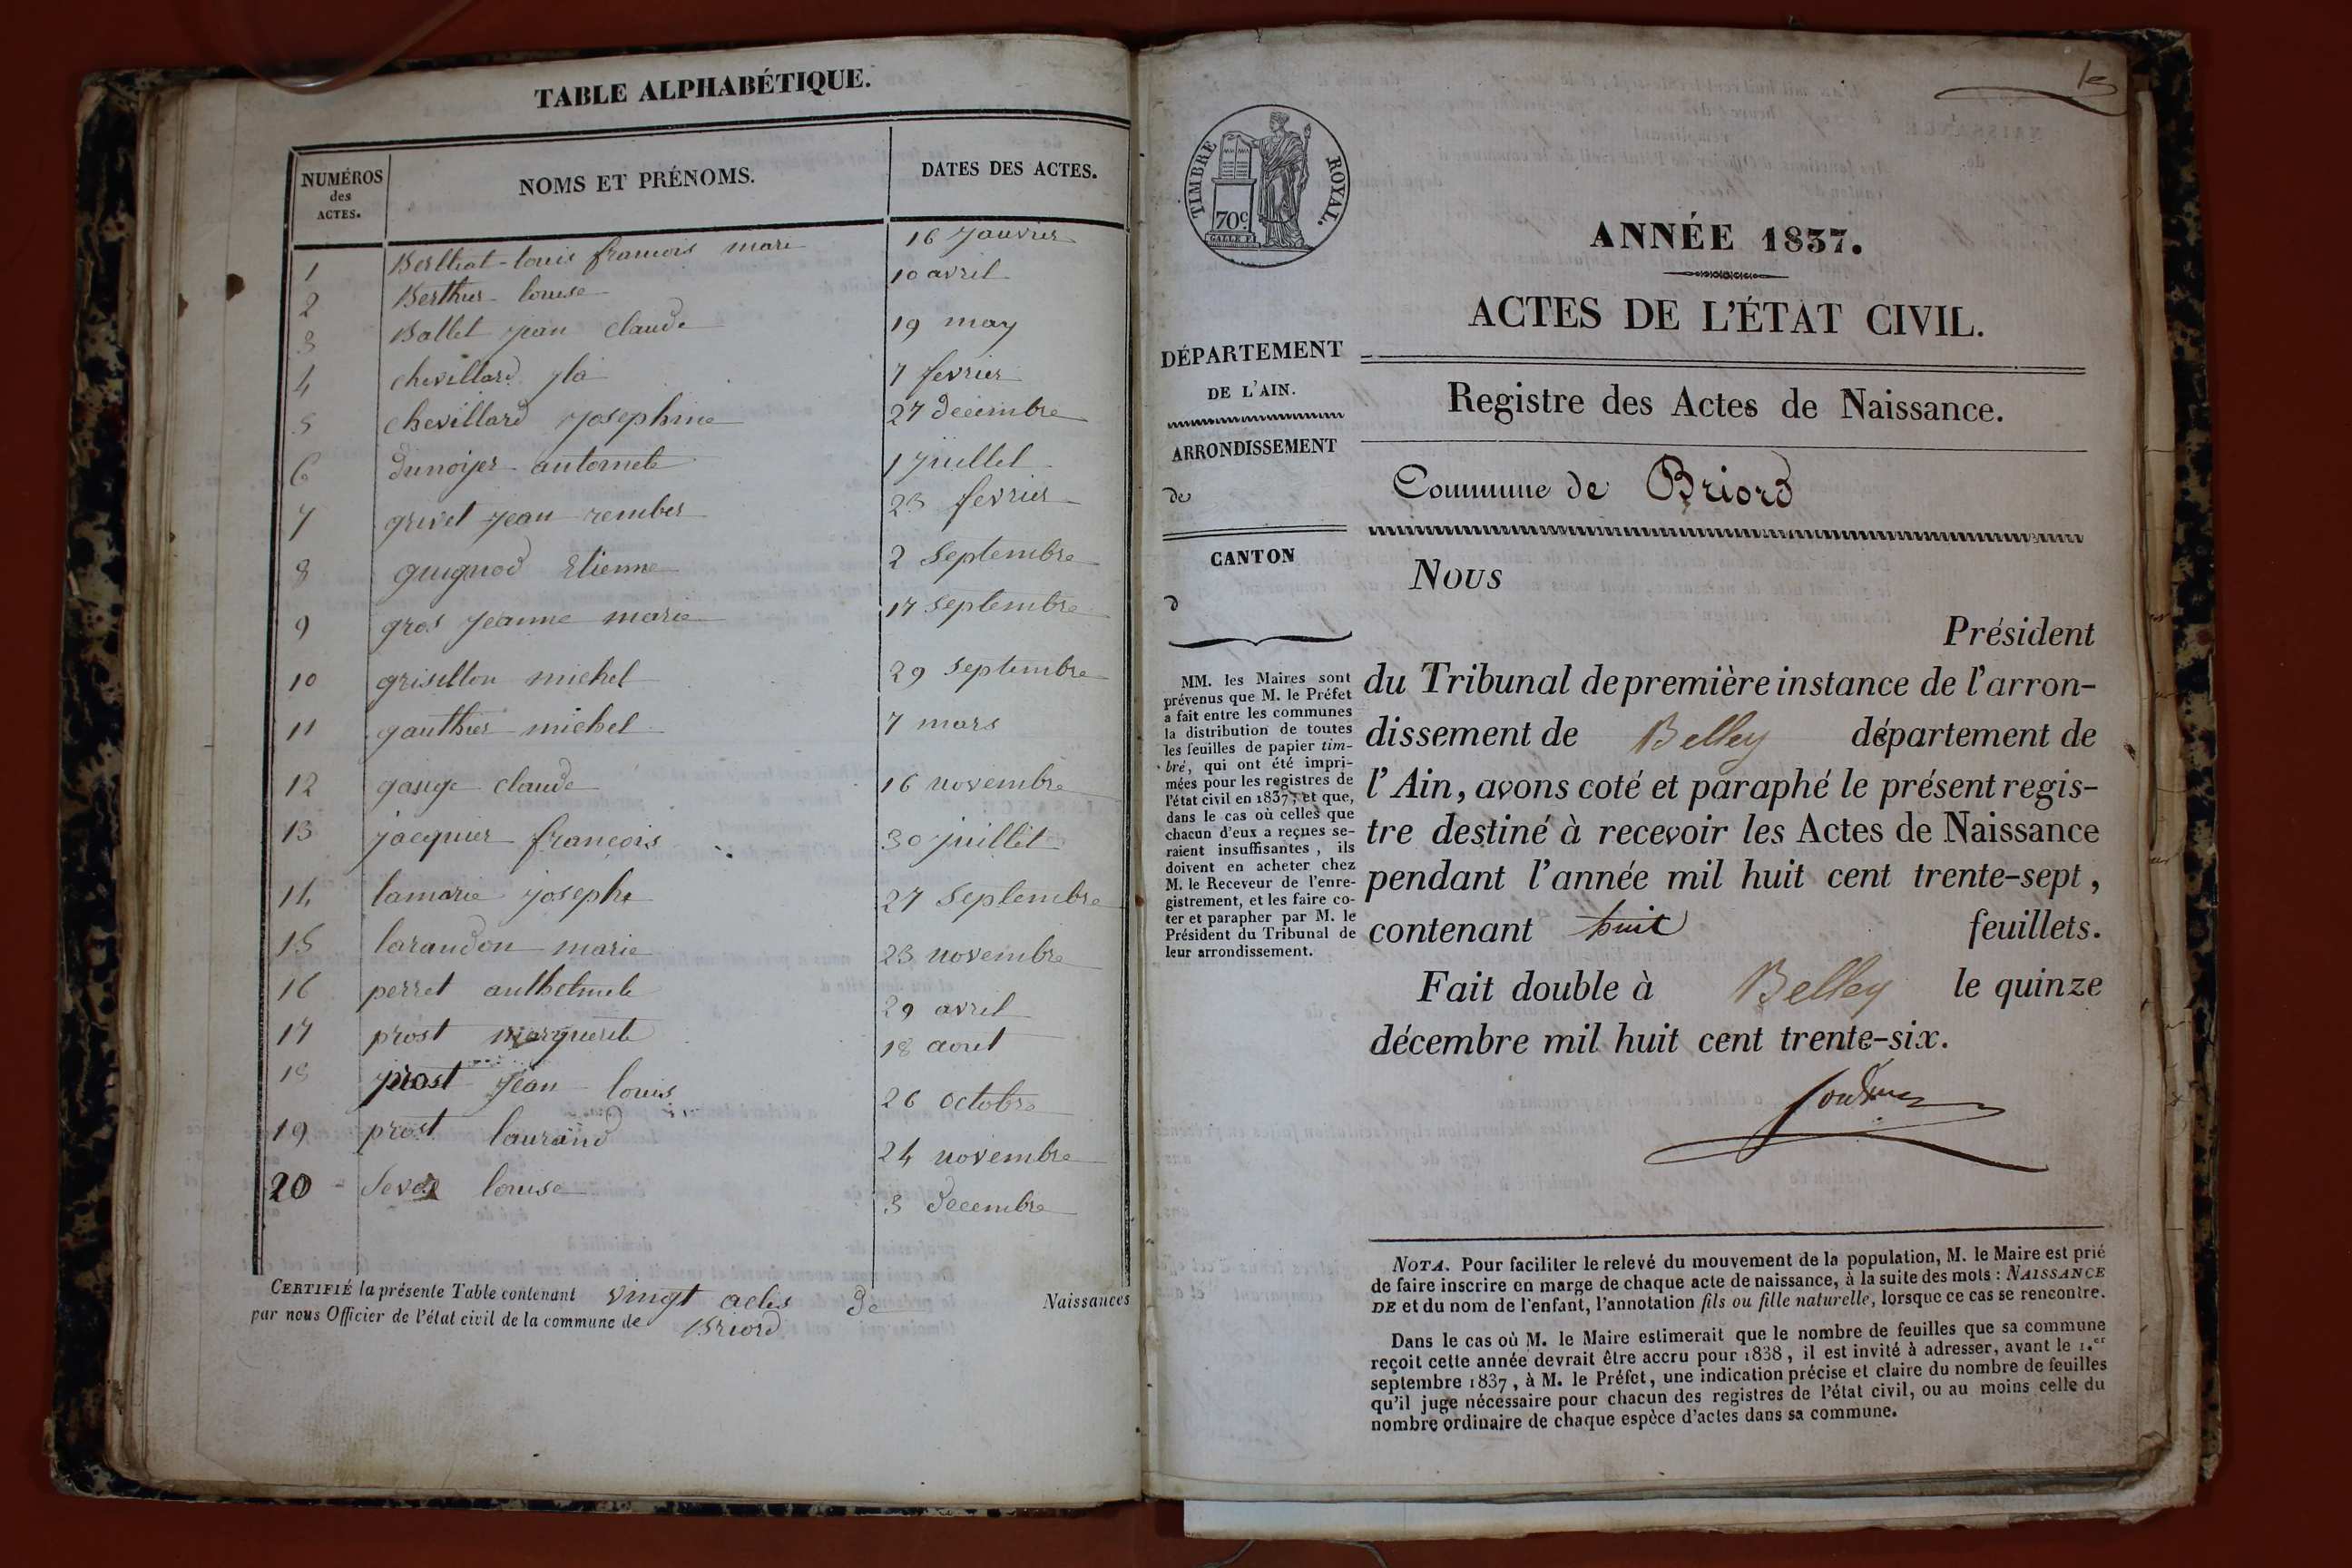 TABLE ALPHABÉTIQUE.
NUMÉROS des ACTES. NOMS ET PRÉNOMS. DATES DES ACTES.
1 Berlliat louis francois marie 16 Janvier
2 Berthier louise 10 avril
3 Ballet jean claude 19 may
4 chevillard 7 fevrier
5 chevillard Josephine 27 decembre
6 dunoyer antoinete 1 Juillet
7 grivet jean rember 23 fevrier
8 guignod Etienne 2 Septembre
9 gros jeanne marie 17 septembre
10 grisellon michel 29 septembre
11 gauthier michel 7 mars
12 claude 16 novembre
13 jacquier francois 30 juillet
14 lamarie josephe 27 Septembre
15 laraudon marie 23 novembre
16 perret anthelmete 29 avril
17 prost marguerite 18 aout
18 prost jean louis 26 octobre
19 prost laurand 24 novembre
20 louise 3 decembre
CERTIFIÉ la présente Table contenant vingt actes de Naissances
par nous Officier de l'état civil de la commune de Briord
TIMBRE ROYAL.
70 c
ANNÉE 1837.
ACTES DE L'ÉTAT CIVIL.
DÉPARTEMENT
DE L'AIN.
ARRONDISSEMENT
de
CANTON
d
MM. les Maires sont
prévenus que M. le Préfet
a fait entre les communes
la distribution de toutes
les feuilles de papier tim-
bré, qui ont été impri-
mées pour les registres de
l'état civil en 1837; et que,
dans le cas où celles que
chacun d'eux a reçues se-
raient insuffisantes, ils
doivent en acheter chez
M. le Receveur de l'enre-
gistrement, et les faire co-
ter et parapher par M. le
Président du Tribunal de
leur arrondissement.
Registre des Actes de Naissance.
Commune de Briord
Nous
Président
du Tribunal de première instance de l'arron-
dissement de Belley département de
l'Ain, avons coté et paraphé le présent regis-
tre destiné à recevoir les Actes de Naissance
pendant l'année mil huit cent trente-sept,
contenant huit feuillets.
Fait double à Belley le quinze
décembre mil huit cent trente-six.
NOTA. Pour faciliter le relevé du mouvement de la population, M. le Maire est prié
de faire inscrire en marge de chaque acte de naissance, à la suite des mots : NAISSANCE
DE et du nom de l'enfant, l'annotation fils ou fille naturelle, lorsque ce cas se rencontre.
Dans le cas où M. le Maire estimerait que le nombre de feuilles que sa commune
reçoit cette année devrait être accru pour 1838, il est invité à adresser, avant le 1.er
septembre 1837, à M. le Préfet, une indication précise et claire du nombre de feuilles
qu'il juge nécessaire pour chacun des registres de l'état civil, ou au moins celle du
nombre ordinaire de chaque espèce d'actes dans sa commune.